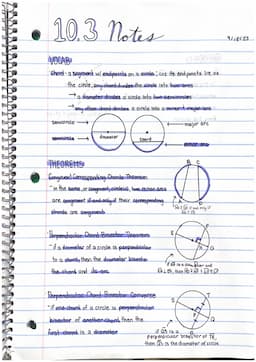 10.3 Notes
VOCAB:
Chord - a segment w/ endpoints on a circle;
the circle, any chord divides the circle into two arcs
→ a diameter divides a circle into two semicircles
→ any other chord divides a circle into a minor & major arc
semicircle
major arc
semicircle
diameter
chord
minor arc
THEOREMS:
Congruent Corresponding Chords Theorem
- in the same or congruent circles, two minor arcs
are congruent if and only if their corresponding
chords are congruent
B C
Perpendicular Chord Bisector Theorem
- if a diameter of a circle is perpendicular
to a chord, then the diameter bisects
the chord and its arc
Perpendicular Chord Bisector Converse
- if one chord of a circle is perpendicular
bisector of another chord, then the
first chord is a diameter
perpendicular bisector of
is a diameter of the circle